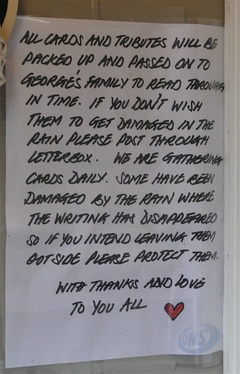 ALL CARDS AND TRIBUTES WILL BE
PACKED UP AND PASSED ON TO
GEORGE'S FAMILY TO READ THROUGH
IN TIME. IF YOU DON'T WISH
THEM TO GET DAMAGED IN THE
RAIN PLEASE POST THROUGH
LETTERBOX. WE ARE GATHERING
CARDS DAILY. SOME HAVE BEEN
DAMAGED BY THE RAIN WHERE
THE WRITING HAS DISAPPEARED
SO IF YOU INTEND LEAVING THEM
OUTSIDE PLEASE PROTECT THEM.
WITH THANKS AND LOVE
TO YOU ALL